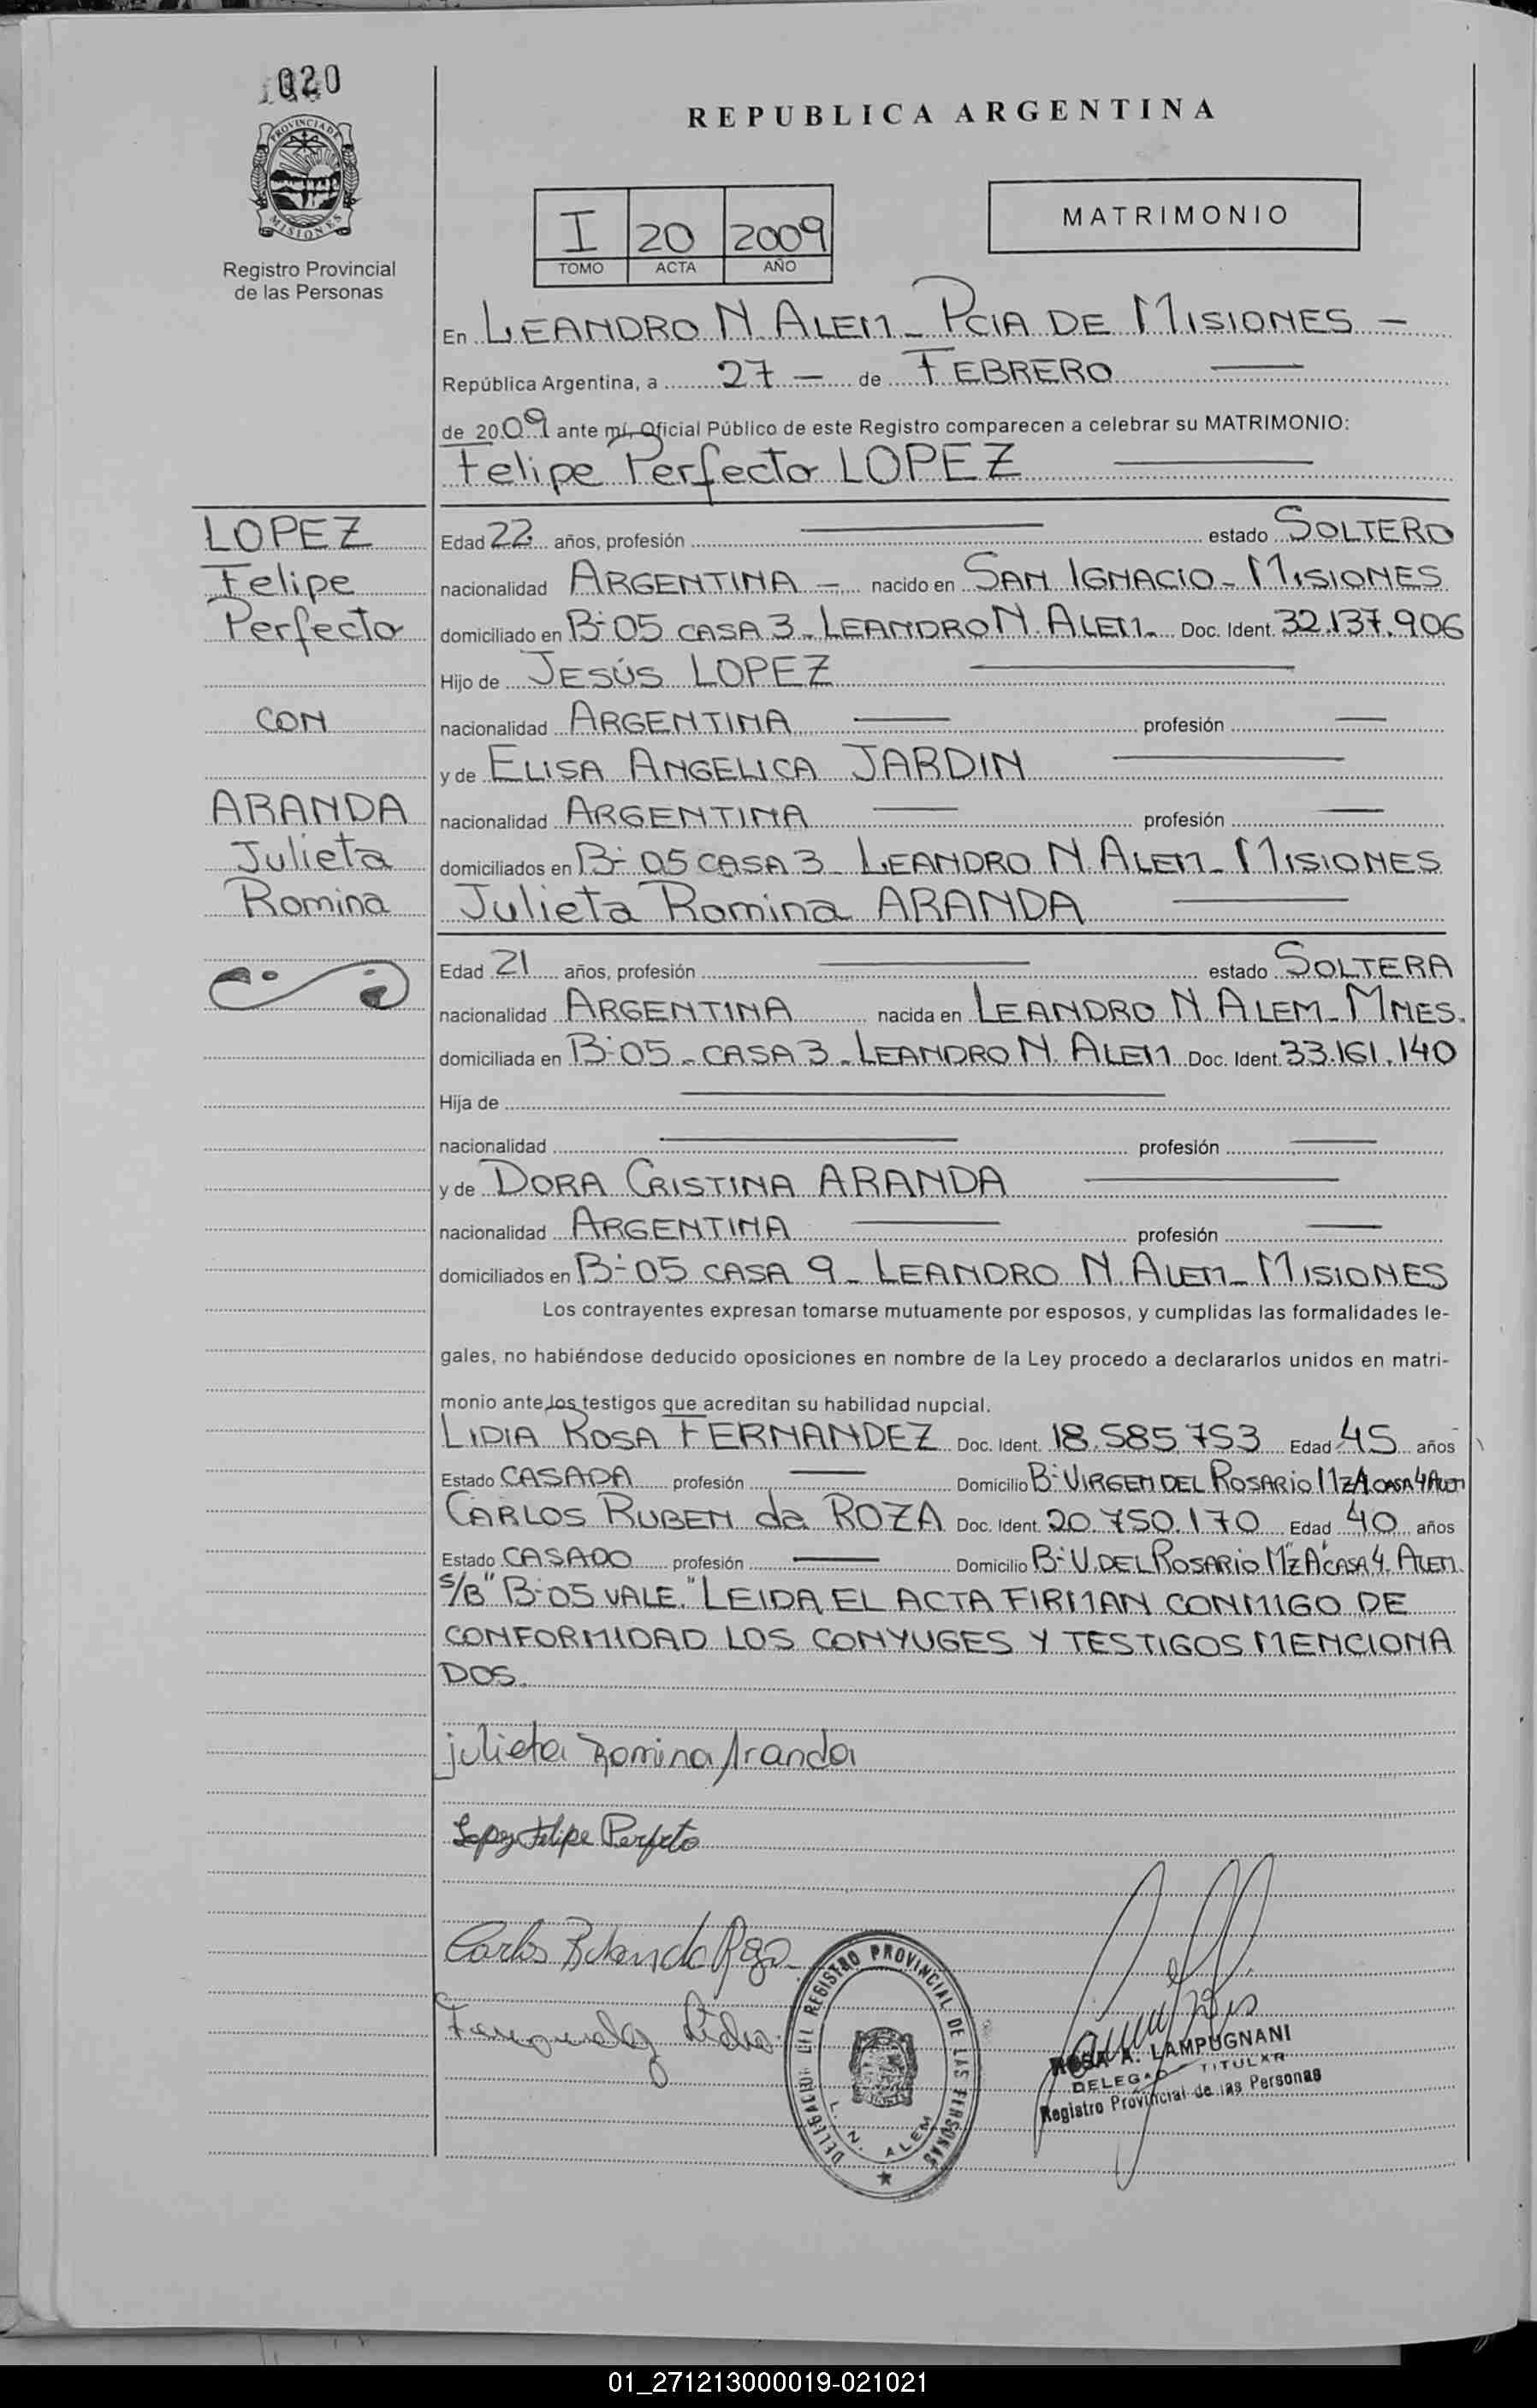 020
PROVINCIA DE
MISIONES
Registro Provincial
de las Personas
REPUBLICA ARGENTINA
I 20 2009
TOMO ACTA AÑO
MATRIMONIO
En LEANDRO N. ALEM - PCIA DE MISIONES -
República Argentina, a 27 - de FEBRERO
de 2009 ante mí, Oficial Público de este Registro comparecen a celebrar su MATRIMONIO:
Felipe Perfecto LOPEZ
LOPEZ
Felipe
Perfecto
CON
ARANDA
Julieta
Romina
Edad 22 años, profesión estado SOLTERO
nacionalidad ARGENTINA - nacido en SAN IGNACIO - MISIONES
domiciliado en B- 05 CASA 3 - LEANDRO N. ALEM - Doc. Ident. 32.137.906
Hijo de JESÚS LOPEZ
nacionalidad ARGENTINA profesión
y de ELISA ANGELICA JARDIN
nacionalidad ARGENTINA profesión
domiciliados en B- 05 CASA 3 - LEANDRO N. ALEM - MISIONES
Julieta Romina ARANDA
Edad 21 años, profesión estado SOLTERA
nacionalidad ARGENTINA nacida en LEANDRO N. ALEM - MNES.
domiciliada en B- 05 - CASA 3 - LEANDRO N. ALEM Doc. Ident. 33.161.140
Hija de
nacionalidad profesión
y de DORA CRISTINA ARANDA
nacionalidad ARGENTINA profesión
domiciliados en B- 05 CASA 9 - LEANDRO N. ALEM - MISIONES
Los contrayentes expresan tomarse mutuamente por esposos, y cumplidas las formalidades le-
gales, no habiéndose deducido oposiciones en nombre de la Ley procedo a declararlos unidos en matri-
monio ante los testigos que acreditan su habilidad nupcial.
LIDIA ROSA FERNANDEZ Doc. Ident. 18.585.753 Edad 45 años
Estado CASADA profesión Domicilio B- VIRGEN DEL ROSARIO MZ A CASA 4 ALEM
CARLOS RUBEN da ROZA Doc. Ident. 20.750.170 Edad 40 años
Estado CASADO profesión Domicilio B- V. DEL ROSARIO MZ "A" CASA 4. ALEM.
S/B "B- 05 VALE." LEIDA EL ACTA FIRMAN CONMIGO DE
CONFORMIDAD LOS CONYUGES Y TESTIGOS MENCIONA
DOS.
julieta Romina Aranda
Lopez Felipe Perfeto
Carlos Ruben da Roza
Fernandez Lidia
DELEGACION DEL REGISTRO PROVINCIAL DE LAS PERSONAS
L. N. ALEM
ROSA A. LAMPUGNANI
DELEGADO TITULAR
Registro Provincial de las Personas
01_271213000019-021021